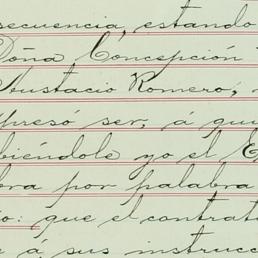 secuencia, estando
Doña Concepción
Eustacio Romero,
presó ser, á qu
biéndole yo el E
bra por palabra
o: que el contrat
á sus instrucc